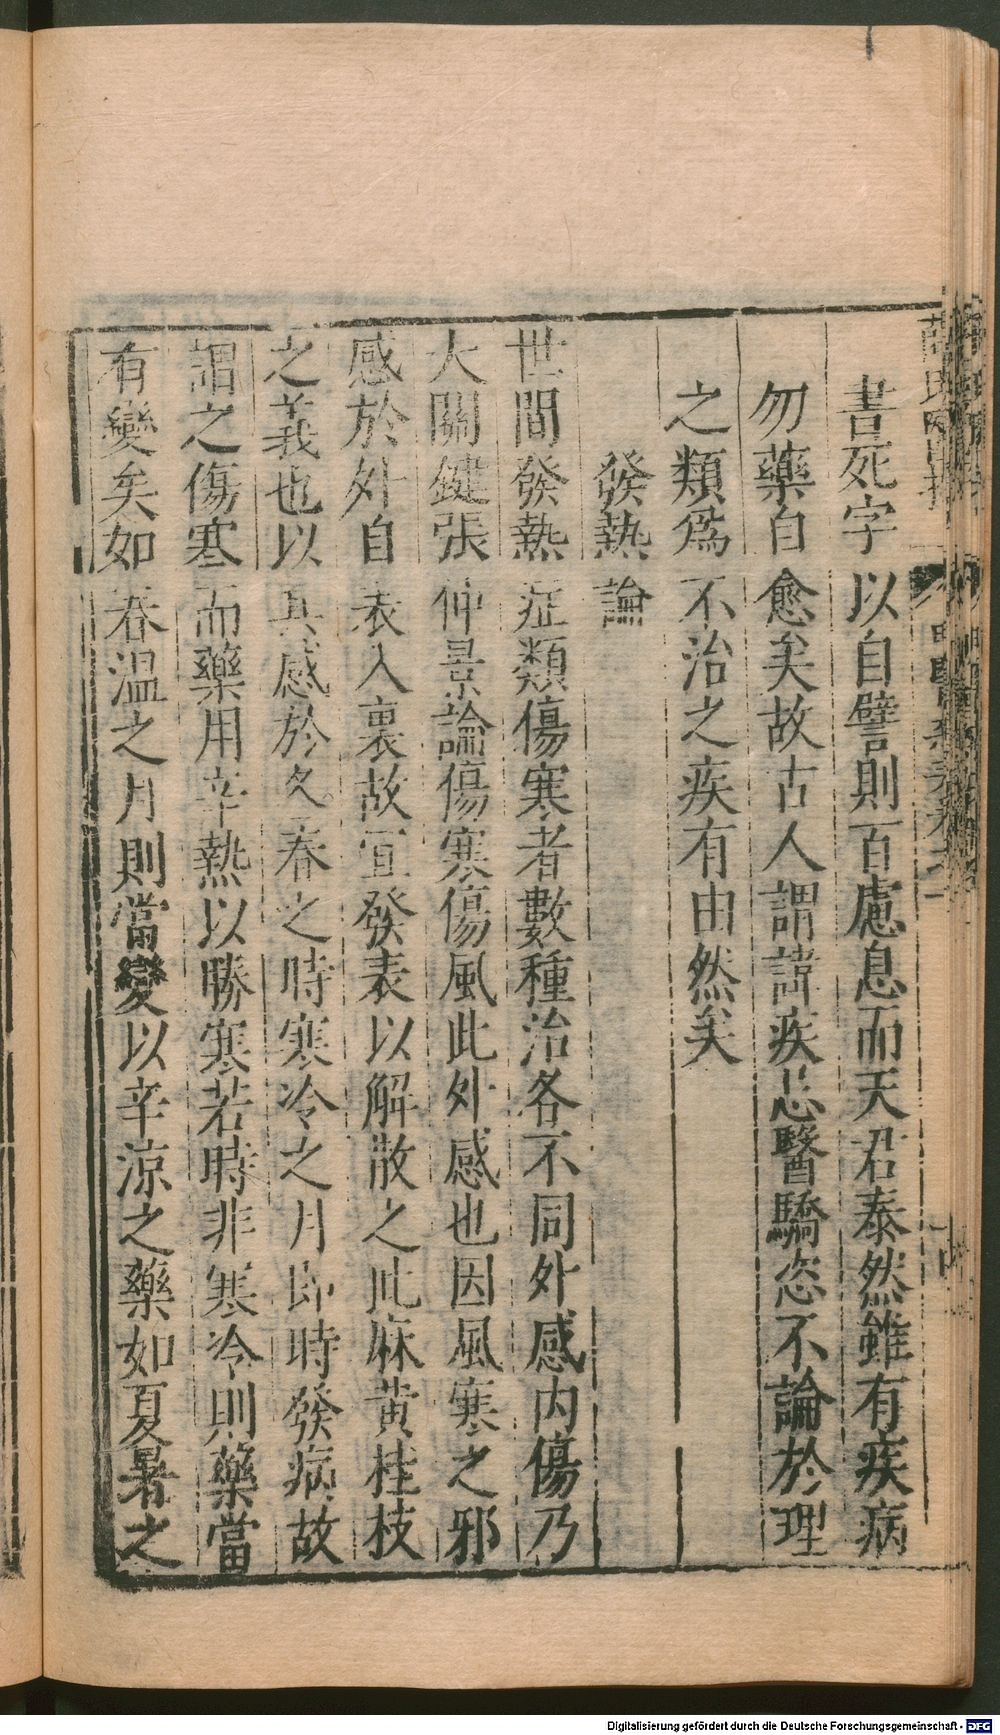 書死字以自譬則百慮息而天君泰然雖有疾病
勿藥自愈矣故古人謂諱疾忌醫驕恣不論於理
之類爲不治之疾有由然矣
發熱論
世間發熱症類傷寒者數種治各不同外感内傷乃
大關鍵張仲景論傷寒傷風此外感也因風寒之邪
感於外自表入裏故宜發表以解散之此麻黄桂枝
之義也以其感於冬春之時寒冷之月即時發病故
謂之傷寒而藥用辛熱以勝寒若時非寒冷則藥當
有變矣如春溫之月則當變以辛涼之藥如夏暑之
Digitalisierung gefördert durch die Deutsche Forschungsgemeinschaft - DFG